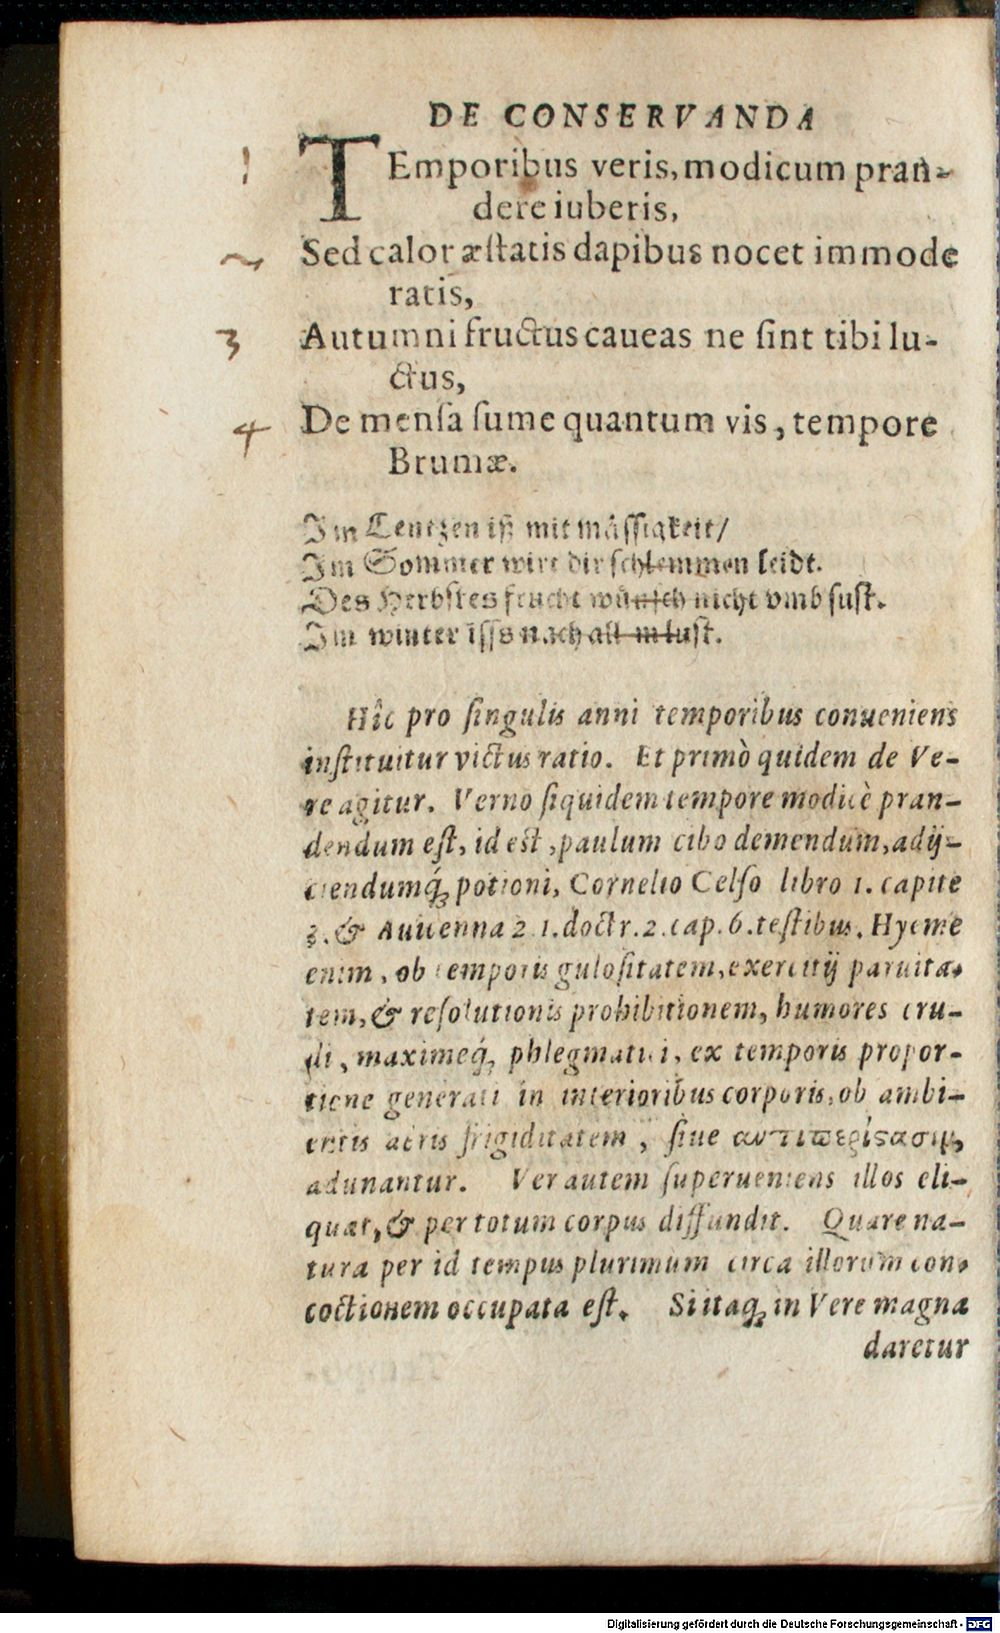 DE CONSERVANDA
1 TEmporibus veris, modicum pran-
dere iuberis,
2 Sed calor æſtatis dapibus nocet immode
ratis,
3 Autumni fructus caueas ne ſint tibi lu-
ctus,
4 De menſa ſume quantum vis, tempore
Brumæ.
Im Lentzen iß mit måſſigkeit/
Im Sommer wirt dir ſchlemmen leidt.
Des Herbſtes frucht wünſch nicht vmb ſuſt.
Im winter iſſs nach all m luſt.
Hîc pro ſingulis anni temporibus conueniens
inſtituitur victus ratio. Et primò quidem de Ve-
re agitur. Verno ſiquidem tempore modicè pran-
dendum eſt, id eſt, paulum cibo demendum, adij-
ciendumq́; potioni, Cornelio Celſo libro 1. capite
3. & Auicenna 2 1. doctr. 2. cap. 6. teſtibus. Hyeme
enim, ob temporis guloſitatem, exercitij paruita-
tem, & reſolutionis prohibitionem, humores cru-
di, maximeq́; phlegmatici, ex temporis propor-
tione generati in interioribus corporis, ob ambi-
entis aëris frigiditatem, ſiue αντιπερίστασιμ,
adunantur. Ver autem ſuperueniens illos eli-
quat, & per totum corpus diffundit. Quare na-
tura per id tempus plurimum circa illorum con-
coctionem occupata eſt. Si itaq; in Vere magna
daretur
Digitalisierung gefördert durch die Deutsche Forschungsgemeinschaft - DFG